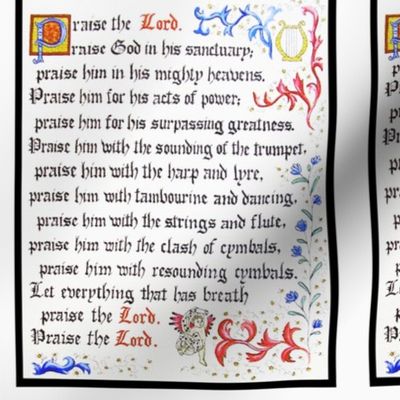 Praise the Lord.
Praise God in his sanctuary;
praise him in his mighty heavens.
Praise him for his acts of power;
praise him for his surpassing greatness.
Praise him with the sounding of the trumpet,
praise him with the harp and lyre,
praise him with tambourine and dancing,
praise him with the strings and flute,
praise him with the clash of cymbals,
praise him with resounding cymbals.
Let everything that has breath
praise the Lord.
Praise the Lord.